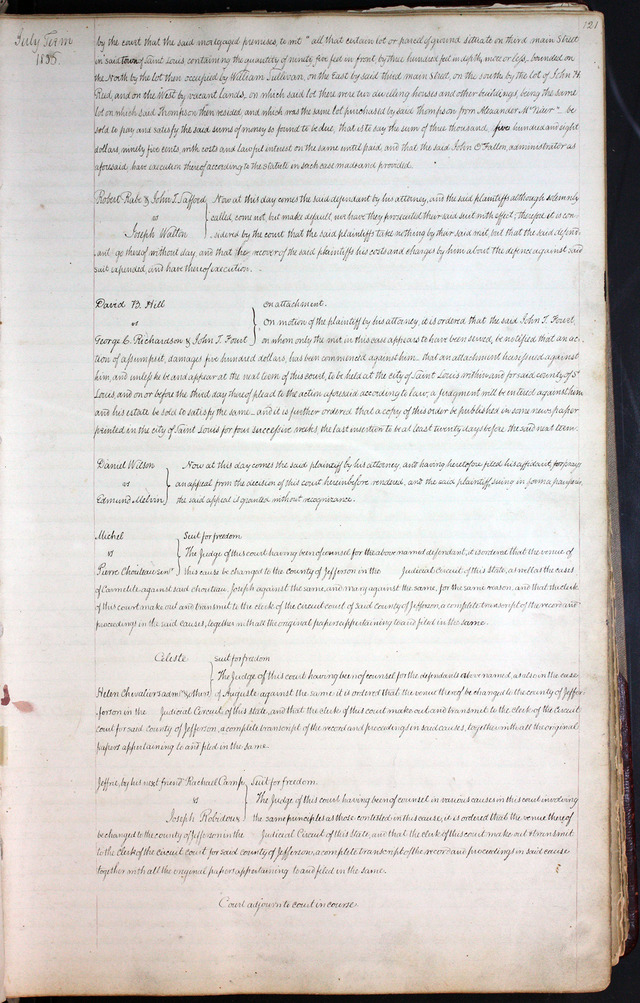 121
July Term
1835
by the court that the said mortgaged premises, to wit "all that certain lot or parcel of ground situate on third main Street
in said town of Saint Louis containing the quantity of ninety five feet in front by three hundred feet in depth, more or less, bounded on
the North by the lot then occupied by William Sullivan, on the East by said third main Street, on the south by the lot of John H
Reid, and on the West by vacant lands, on which said lot there were two dwelling houses and other buildings, being the same
lot on which said Thompson then resided, and which was the same lot purchased by said Thompson from Alexander McNair" be
sold to pay and satisfy the said sums of money so found to be due, that is to say the sum of three thousand, five hundred and eight
dollars, ninety five cents with costs and lawful interest on the same until paid, and that the said John O'Fallon, administrator as
aforesaid have execution thereof according to the statute in such case made and provided.
Robert Rabe & John T. Safford Now at this day comes the said defendant by his attorney, and the said plaintiffs although solemnly
vs called, come not, but make default, nor have they prosecuted their said suit with effect; therefore it is con-
Joseph Walton sidered by the court that the said plaintiffs take nothing by their said suit, but that the said defend-
ant go thereof without day, and that he recover of the said plaintiffs his costs and charges by him about the defence against said
suit expended, and have thereof execution.
David B. Hill on attachment.
vs On motion of the plaintiff by his attorney, it is ordered that the said John T. Fout,
George C. Richardson & John T. Fout on whom only the writ in this case appears to have been served, be notified that an ac-
tion of assumpsit, damages five hundred dollars, has been commenced against him. that an attachment has issued against
him, and unless he be and appear at the next term of this court, to be held at the city of Saint Louis within and for said county of St
Louis, and on or before the third day thereof plead to the action aforesaid according to law, a judgment will be entered against him
and his estate be sold to satisfy the same. and it is further ordered that a copy of this order be published in some news paper
printed in the city of Saint Louis for four successive weeks, the last insertion to be at least twenty days before the said next term.
Daniel Wilson Now at this day comes the said plaintiff by his attorney, and having heretofore filed his affidavit, for prays
vs an appeal from the decision of this court herein before rendered, and the said plaintiff suing in forma pauperis
Edmund Melvin the said appeal is granted without recognizance.
Michel Suit for freedom
vs The Judge of this court having been of counsel for the above named defendant, it is ordered that the venue of
Pierre Chouteau senr this cause be changed to the county of Jefferson in the Judicial Circuit of this state, as well as the cases
of Carmelite against said chouteau, Joseph against the same, and mary against the same, for the same reason, and that the clerk
of this court make out and transmit to the clerk of the circuit court of said county of Jefferson, a complete transcript of the record and
proceedings in the said causes, together with all the original papers appertaining to and filed in the same.
Celeste suit for freedom
The Judge of this court having been of counsel for the defendants above named, as also in the case
Helen Chevaliers admr & others of Auguste against the same it is ordered that the venue thereof be changed to the county of Jeffer
Jerson in the Judicial Circuit of this state, and that the clerk of this court make out and transmit to the clerk of the Circuit
court for said county of Jefferson, a complete transcript of the record and proceedings in said causes, together with all the original
papers appertaining to and filed in the same.
Jeffrie, by his next friend Rachael Camp Suit for freedom.
vs The Judge of this court having been of counsel in various causes in this court involving
Joseph Robidoux the same principles as those contested in this cause, it is ordered that the venue thereof
be changed to the county of Jefferson in the Judicial Circuit of this State, and that the clerk of this court make out & transmit
to the clerk of the circuit court for said county of Jefferson, a complete transcript of the record and proceedings in said cause
together with all the original papers appertaining to and filed in the same.
Court adjourn to court in course